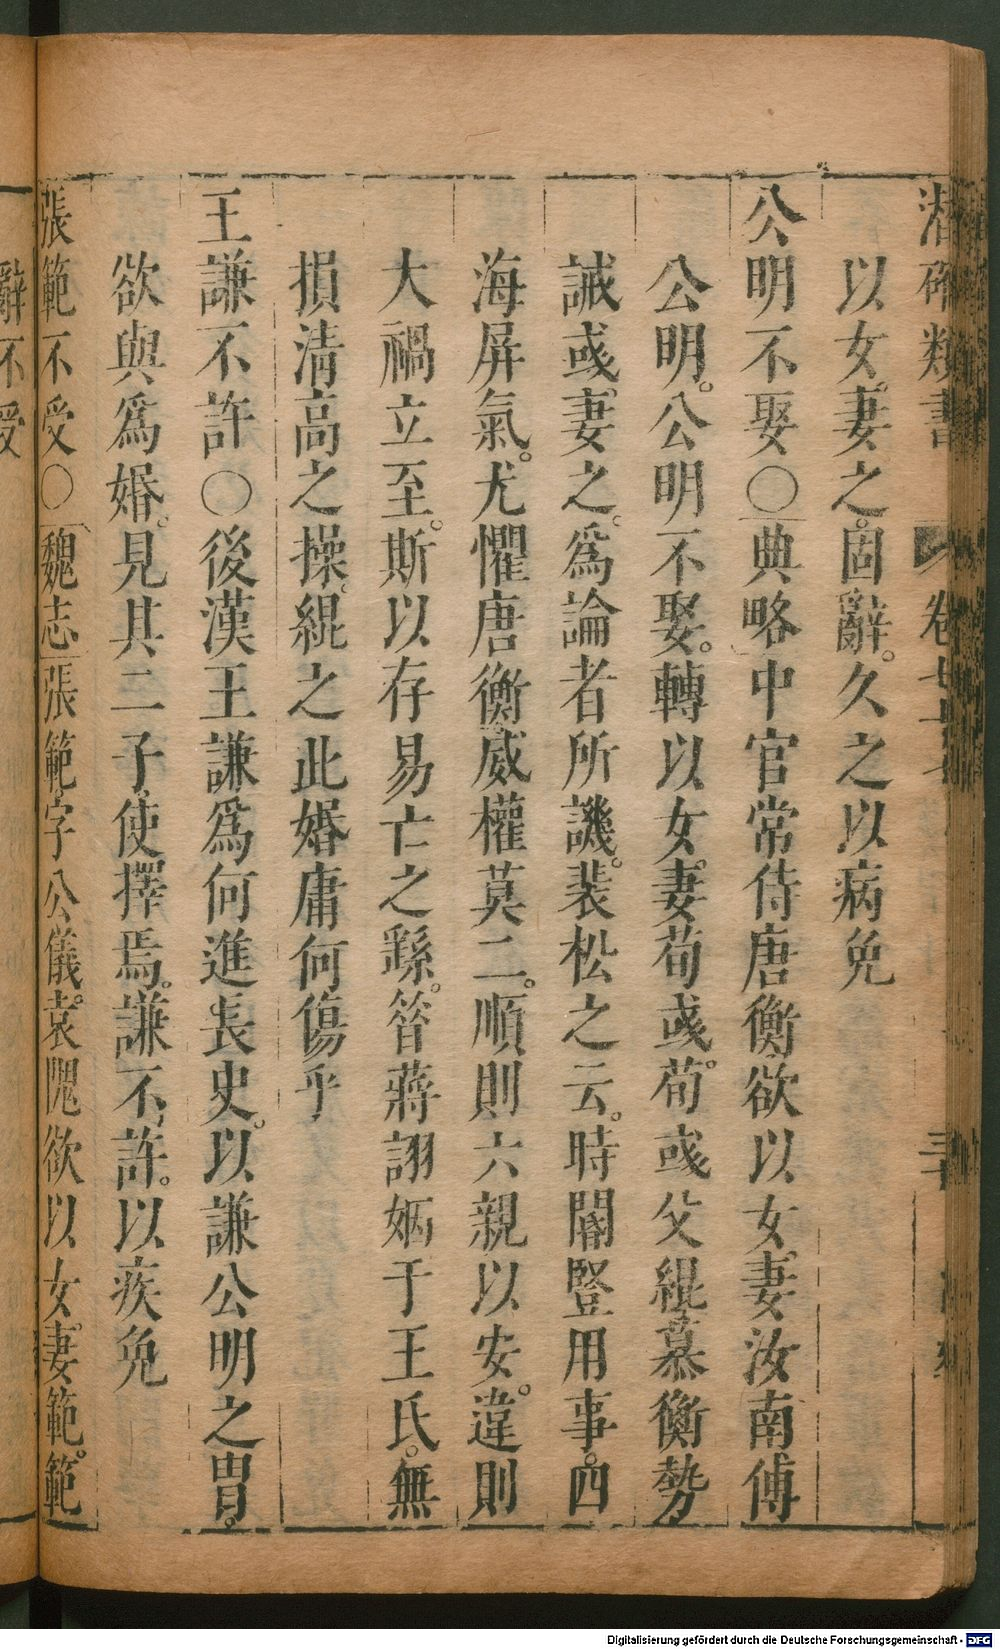 潛確類書 卷七十七
以女妻之。固辭。久之以病免
公明不娶〇典略中官常侍唐衡欲以女妻汝南傅
公明。公明不娶。轉以女妻荀彧。荀彧父緄慕衡勢
誠彧妻之。爲論者所譏。裴松之云。時閹豎用事。四
海屏氣。尤懼唐衡威權莫二。順則六親以安。違則
大禍立至。斯以存易亡之繇。昝蔣詡婣于王氏。無
損清高之操。緄之此婚庸何傷乎
王謙不許〇後漢王謙爲何進長史。以謙公明之冑。
欲與爲婚。見其二子使擇焉。謙不許。以疾免
張範不受〇魏志張範字公儀。袁隗欲以女妻範。範
辭不受
Digitalisierung gefördert durch die Deutsche Forschungsgemeinschaft - DFG